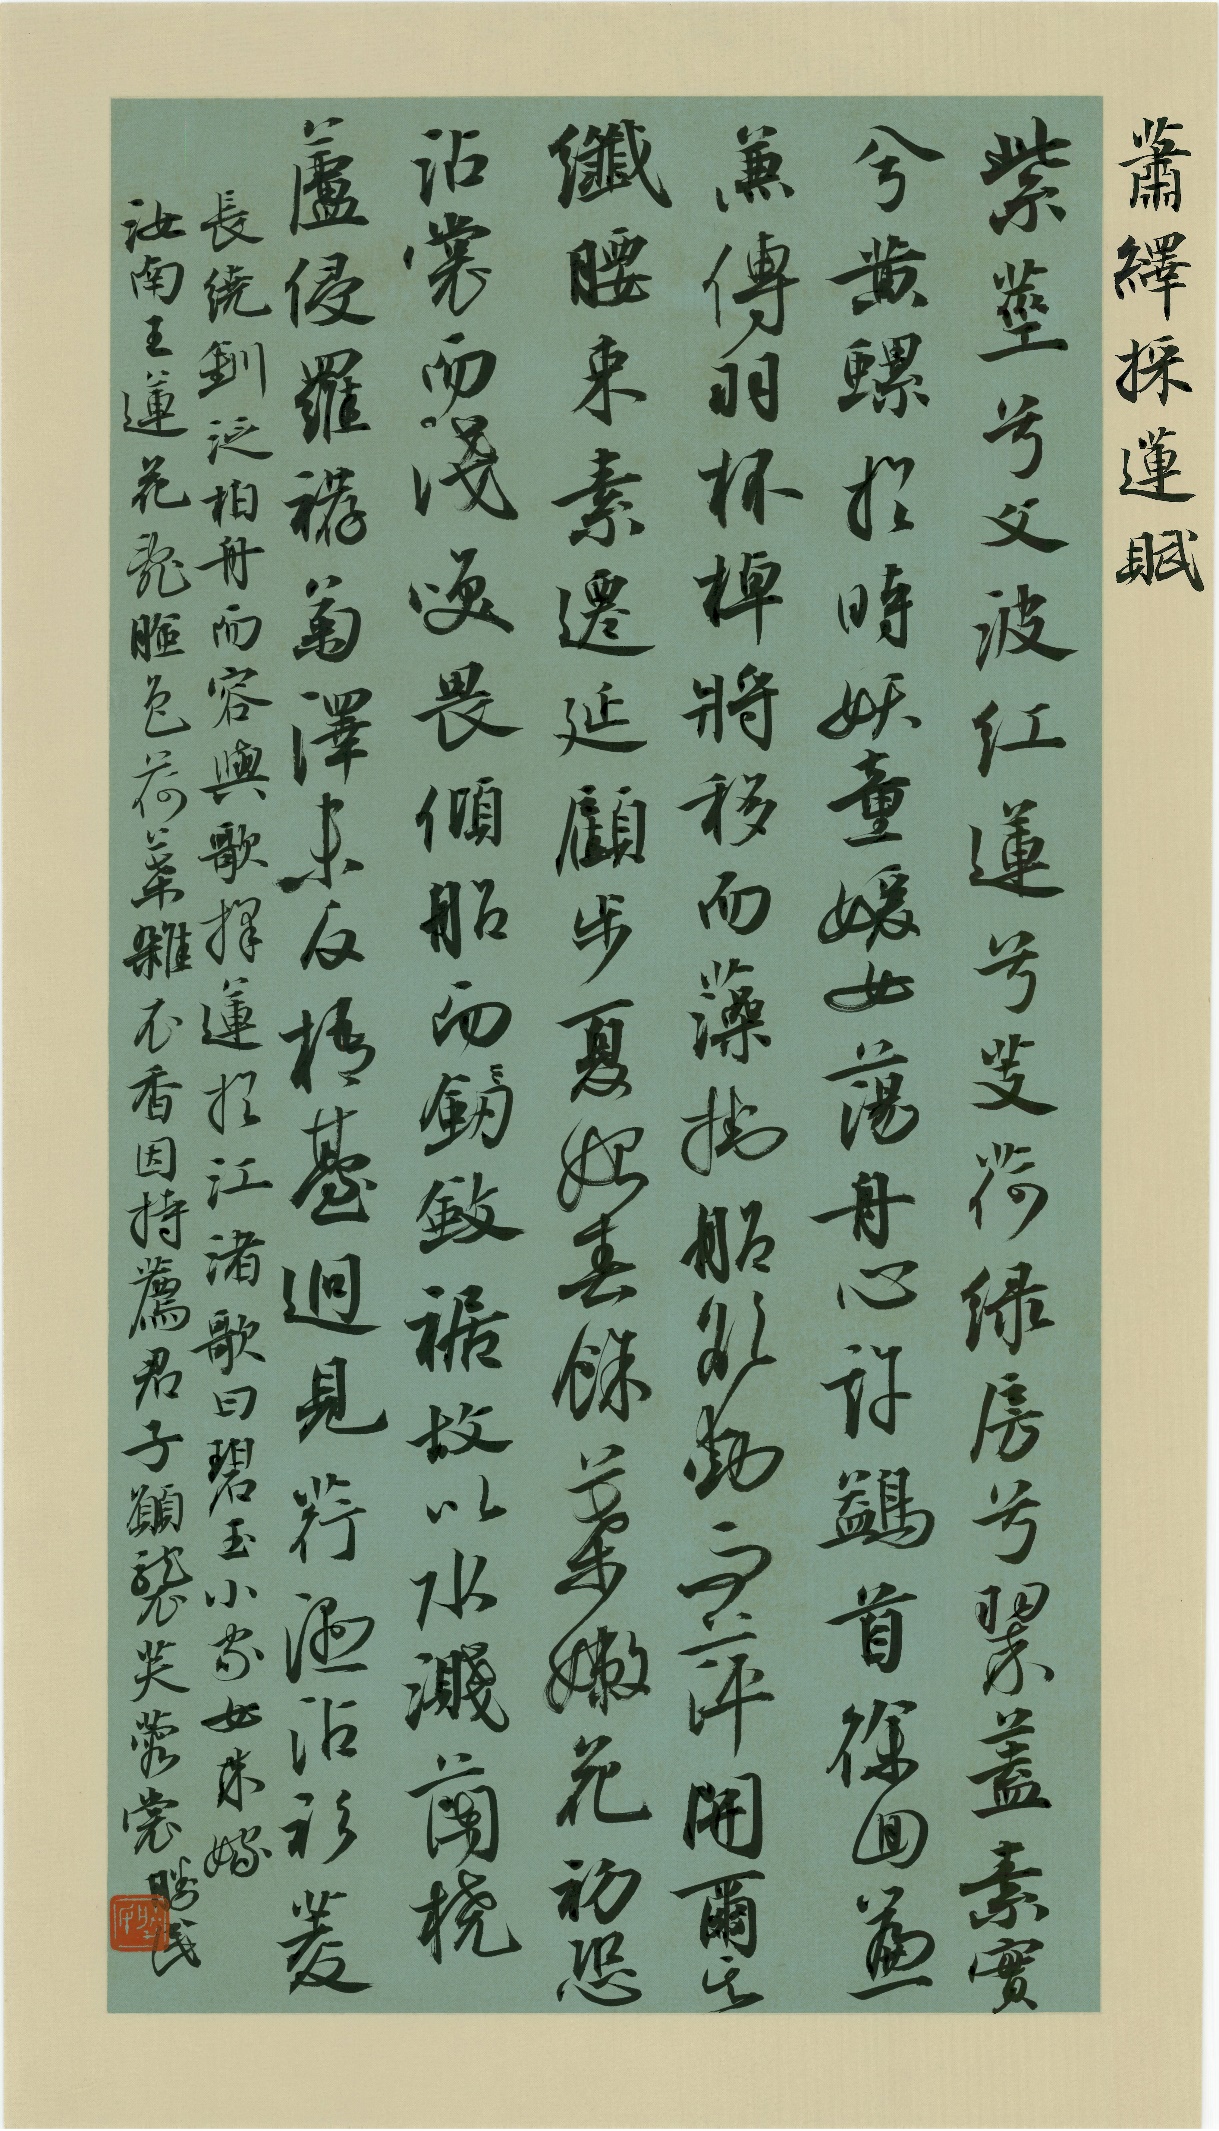 蕭繹採蓮賦
紫莖兮文波紅蓮兮芰荷綠房兮翠蓋素實
兮黃螺於時妖童媛女蕩舟心許鷁首徐回
兼傳羽杯棹將移而藻掛船欲動而萍開爾其
纖腰束素遷延顧步夏始春餘葉嫩花初恐
沾裳而淺笑畏傾船而斂裾故以水濺蘭橈
蘆侵羅䙱菊澤未反梧臺迥見荇濕沾衫菱
長繞釧泛柏舟而容與歌採蓮於江渚歌曰碧玉小家女來嫁
汝南王蓮花亂臉色荷葉雜衣香因持薦君子願襲芙蓉裳
勝民